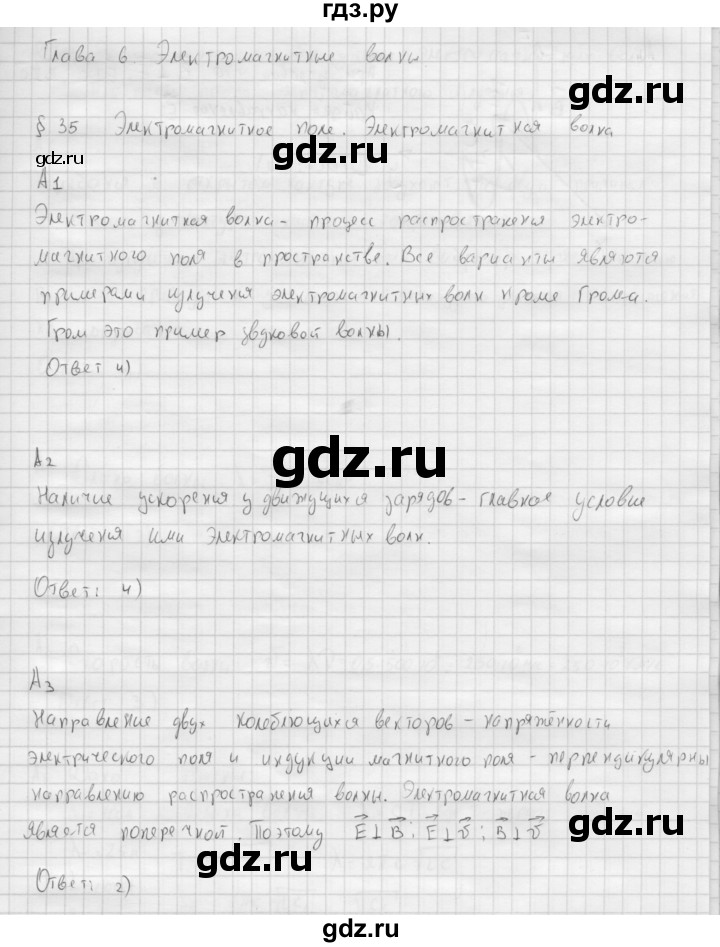 гдз.ру
Глава 6 Электромагнитные волны
gdz.ru
§ 35 Электромагнитное поле. Электромагнитная волна
gdz.ru
gdz.ru
А1
Электромагнитная волна - процесс распространения электро-
магнитного поля в пространстве. Все варианты являются
примерами излучения электромагнитных волн кроме Грома.
Гром это пример звуковой волны.
gdz.ru
Ответ 4)
gdz.ru
А2
Наличие ускорения у движущихся зарядов - главное условие
излучения ими электромагнитных волн.
gdz.ru
Ответ: 4)
gdz.ru
А3
Направление двух колеблющихся векторов - напряжённости
электрического поля и индукции магнитного поля - перпендикулярны
направлению распространения волны. Электромагнитная волна
является поперечной. Поэтому E⃗⊥B⃗; E⃗⊥v⃗; B⃗⊥v⃗
gdz.ru
gdz.ru
Ответ: 2)
gdz.ru